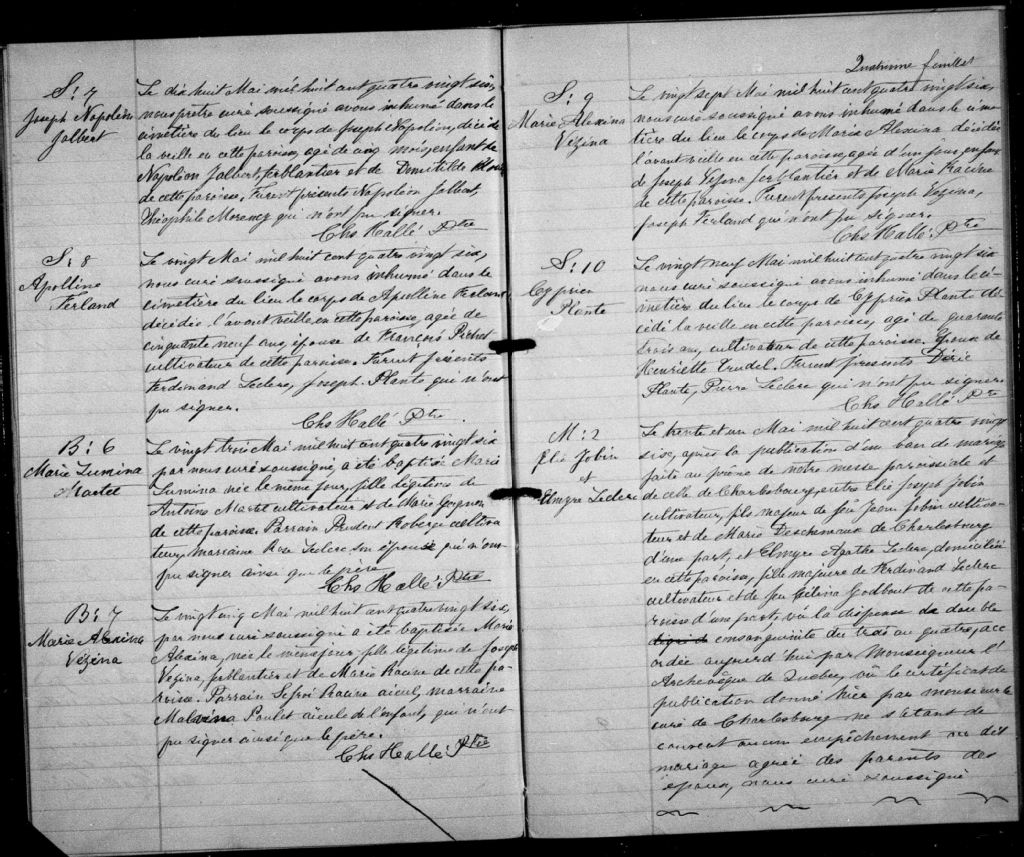 S: 7
Joseph Napoléon
Jalbert
Le dix huit Mai mil huit cent quatre vingt six,
nous prêtre curé soussigné avons inhumé dans le
cimetière du lieu le corps de Joseph Napoléon, décédé
la veille en cette paroisse, agé de cinq mois, enfant de
Napoléon Jalbert, ferblantier et de Domitilde
de cette paroisse. Furent présents Napoléon Jalbert,
Théophile Morency qui n'ont pu signer.
Chs Hallé Ptre
S: 8
Apolline
Ferland
Le vingt Mai mil huit cent quatre vingt six,
nous curé soussigné avons inhumé dans le
cimetière du lieu le corps de Apolline Ferland
décédée l'avant veille en cette paroisse, agée de
cinquante neuf ans, épouse de François Pichet
cultivateur de cette paroisse. Furent présents
Ferdinand Leclerc, Joseph Plante qui n'ont
pu signer.
Chs Hallé Ptre
B: 6
Marie Lumina
Martel
Le vingt trois Mai mil huit cent quatre vingt six
par nous curé soussigné, a été baptisée Marie
Lumina née le même jour, fille légitime de
Antoine Martel cultivateur et de Marie Gagnon
de cette paroisse. Parrain Prudent Roberge cultiva
teur, marraine Rose Leclerc son épouse qui n'ont
pu signer ainsi que le père.
Chs Hallé Ptre
B: 7
Marie Alexina
Vézina
Le vingt cinq Mai mil huit cent quatre vingt six,
par nous curé soussigné a été baptisée Marie
Alexina, née le même jour, fille légitime de Joseph
Vézina, ferblantier et de Marie Racine de cette pa-
roisse. Parrain Lefroi Racine aïeul, marraine
Malvina Poulet aïeule de l'enfant, qui n'ont
pu signer ainsi que le père.
Chs Hallé Ptre
Quatrième feuillet
S: 9
Marie Alexina
Vézina
Le vingt sept Mai mil huit cent quatre vingt six,
nous curé soussigné avons inhumé dans le cime
tière du lieu le corps de Marie Alexina décédée
l'avant veille en cette paroisse, agée d'un jour, enfant
de Joseph Vézina ferblantier et de Marie Racine
de cette paroisse. Furent présents Joseph Vézina,
Joseph Ferland qui n'ont pu signer.
Chs Hallé Ptre
S: 10
Cyprien
Plante
Le vingt neuf Mai mil huit cent quatre vingt six
nous curé soussigné avons inhumé dans le ci-
metière du lieu le corps de Cyprien Plante dé
cédé la veille en cette paroisse, agé de quarante
trois ans, cultivateur de cette paroisse. Epoux de
Henriette Trudel. Furent présents
Plante, Pierre Leclerc qui n'ont pu signer.
Chs Hallé Ptre
M: 2
Elié Jobin
et
Elmyre Leclerc
Le trente et un Mai mil huit cent quatre vingt
six, après la publication d'un ban de mariage
faite au prône de notre messe paroissiale et
de celle de Charlesbourg, entre Elié Joseph Jobin
cultivateur, fils majeur de feu Jean Jobin cultiva-
teur et de Marie Deschenaux de Charlesbourg
d'une part, et Elmyre Agathe Leclerc, domiciliée
en cette paroisse, fille majeure de Ferdinand Leclerc
cultivateur et de feu Célina Godbout de cette pa-
roisse d'une part, vû la dispense de double
consanguinité du trois au quatre, acc
ordée aujourd'hui par Monseigneur l'
Archevêque de Québec, vû le certificat de
publication donné hier par monsieur le
curé de Charlesbourg ne s'étant dé
couvert aucun empêchement au dit
mariage agréé des parents des
époux, nous curé soussigné